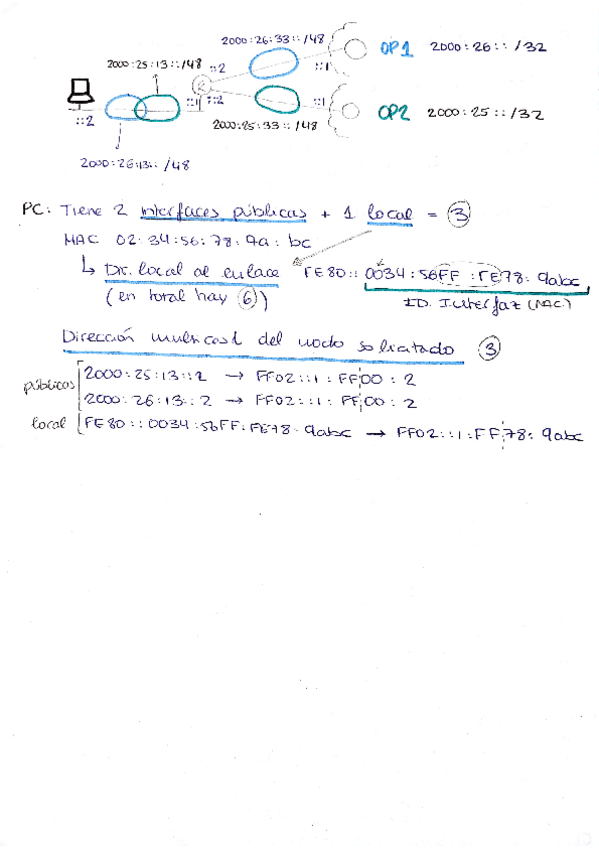 2000:26:33::/48
OP1 2000:26::/32
2000:25:13::/48
::2
::1
R
::1
::2
::1
::2
OP2 2000:25::/32
2000:25:33::/48
2000:26:13::/48
PC: Tiene 2 interfaces públicas + 1 local = 3
MAC 02:34:56:78:9a:bc
↳ Dir. local al enlace FE80::0034:56FF:FE78:9abc
(en total hay 6) ID. Interfaz (MAC)
Dirección multicast del nodo solicitado 3
públicos
2000:25:13::2 → FF02::1:FF00:2
2000:26:13::2 → FF02::1:FF00:2
local FE80::0034:56FF:FE78:9abc → FF02::1:FF78:9abc